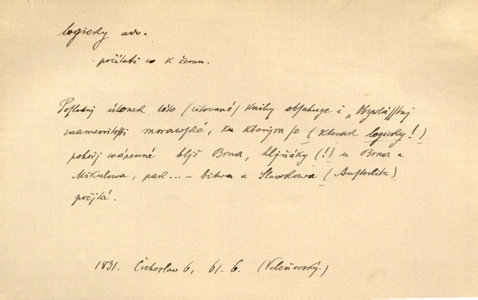 logicky adv.
- počítati co k čemu.
Poslední článek této (citované) knihy obsahuge i „Obzwláſſtnj
znamenitosti morawské, ku kterým se (kterak logicky!)
pohoří wápenné blíž Brna, hljňáky (!) u Brna a
Mikulowa, pak ... – bitwa u Slawkowa (Austerlitz)
počjtá.
1831. Čechoslaw 6, 61. 6. (Vileňovský.)